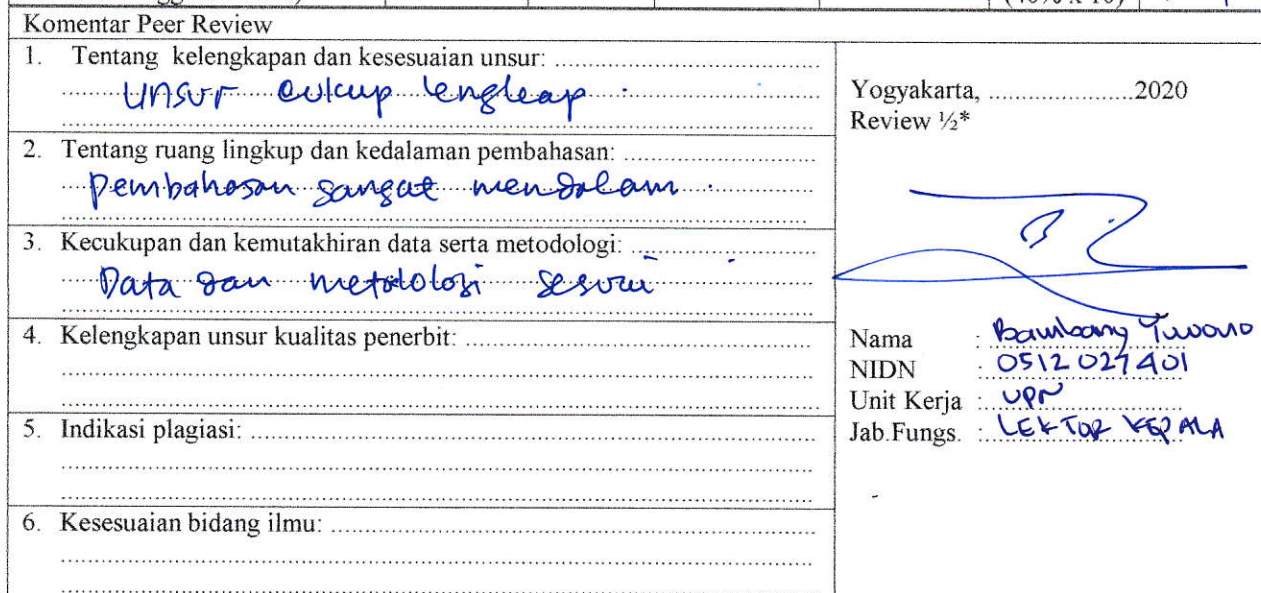 (40% x 10)
Komentar Peer Review
1. Tentang kelengkapan dan kesesuaian unsur: ........................................
unsur cukup lengkap
2. Tentang ruang lingkup dan kedalaman pembahasan: ............................
pembahasan sangat mendalam.
3. Kecukupan dan kemutakhiran data serta metodologi: ...........................
Data dan metodologi sesuai
4. Kelengkapan unsur kualitas penerbit:
5. Indikasi plagiasi: ........................................
6. Kesesuaian bidang ilmu: ........................................
Yogyakarta, ......................2020
Review ½*
Nama : Bambang Yuwono
NIDN : 0512027401
Unit Kerja : UPN
Jab.Fungs. : LEKTOR KEPALA